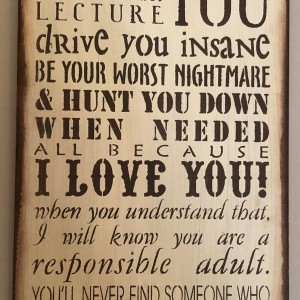 LECTURE YOU
drive you insane
BE YOUR WORST NIGHTMARE
& HUNT YOU DOWN
WHEN NEEDED
ALL BECAUSE
I LOVE YOU!
when you understand that,
I will know you are a
responsible adult.
YOU'LL NEVER FIND SOMEONE WHO